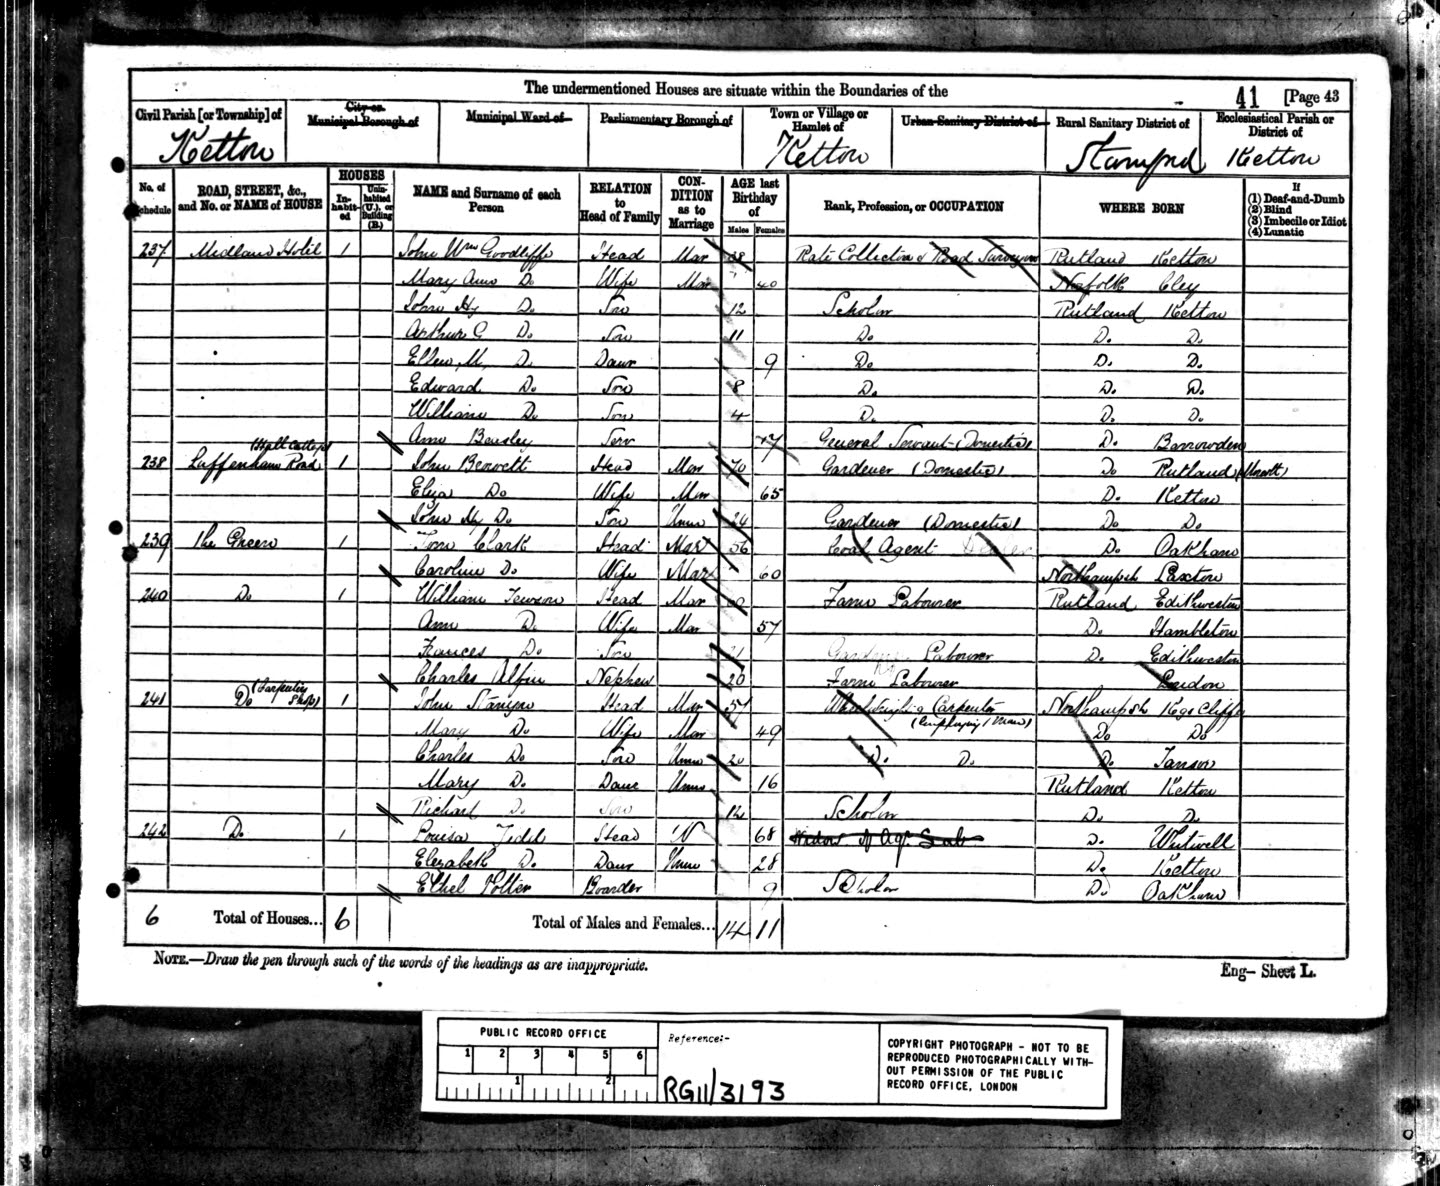 The undermentioned Houses are situate within the Boundaries of the
41 [Page 43
Civil Parish [or Township] of Ketton
City or Municipal Borough of
Municipal Ward of
Parliamentary Borough of
Town or Village or Hamlet of Ketton
Urban Sanitary District of
Rural Sanitary District of Stamford
Ecclesiastical Parish or District of Ketton
No. of Schedule
ROAD, STREET, &c., and No. or NAME of HOUSE
HOUSES
Inhabited
Uninhabited (U.), or Building (B.)
NAME and Surname of each Person
RELATION to Head of Family
CONDITION as to Marriage
AGE last Birthday of
Males Females
Rank, Profession, or OCCUPATION
WHERE BORN
If (1) Deaf-and-Dumb (2) Blind (3) Imbecile or Idiot (4) Lunatic
237 Midland Hotel 1 John Wm Goodliffe Head Mar 38 Rate Collector & Road Surveyor Rutland Ketton
Mary Ann Do Wife Mar 40 Norfolk Cley
John Hy Do Son 12 Scholar Rutland Ketton
Arthur G Do Son 11 Do Do Do
Ellen M. Do Daur 9 Do Do Do
Edward Do Son 8 Do Do Do
William Do Son 4 Do Do Do
Ann Beasley Serv 17 General Servant (Domestic) Do Barrowden
238 Luffenham Road 1 John Bennett Head Mar 70 Gardener (Domestic) Do Rutland
Eliza Do Wife Mar 65 Do Ketton
John Hy Do Son Unm 24 Gardener (Domestic) Do Do
239 The Green 1 Tom Clark Head Mar 56 Coal Agent Do Oakham
Caroline Do Wife Mar 60 Northampsh Laxton
240 Do 1 William Head Mar Farm Labourer Rutland Edithweston
Ann Do Wife Mar 57 Do Hambleton
Frances Do Son 21 Labourer Do Edithweston
Charles Nephew 20 Farm Labourer London
241 Do (Carpenters Shop) 1 John Stanyon Head Mar 51 Wheelwright & Carpenter Northampsh Kgs Cliffe
(Employing 1 man)
Mary Do Wife Mar 49 Do Do
Charles Do Son Unm 20 Do Do Do Tansor
Mary Do Daur Unm 16 Rutland Ketton
Richard Do Son 12 Scholar Do Do
242 Do 1 Louisa Head W 68 Widow of Agr. Lab Do Whitwell
Elizabeth Do Daur Unm 28 Do Ketton
Ethel Potter Boarder 9 Scholar Do Oakham
6 Total of Houses... 6 Total of Males and Females... 14 11
NOTE.—Draw the pen through such of the words of the headings as are inappropriate.
Eng— Sheet L.
PUBLIC RECORD OFFICE
1 2 3 4 5 6
1 2
Reference:-
RG11/3193
COPYRIGHT PHOTOGRAPH - NOT TO BE
REPRODUCED PHOTOGRAPHICALLY WITH-
OUT PERMISSION OF THE PUBLIC
RECORD OFFICE, LONDON